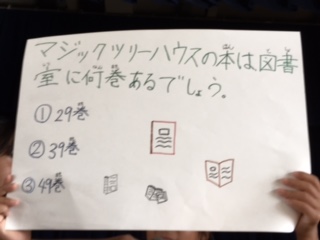 マジックツリーハウスの本は図書
室に何巻あるでしょう。
①29巻
②39巻
③49巻